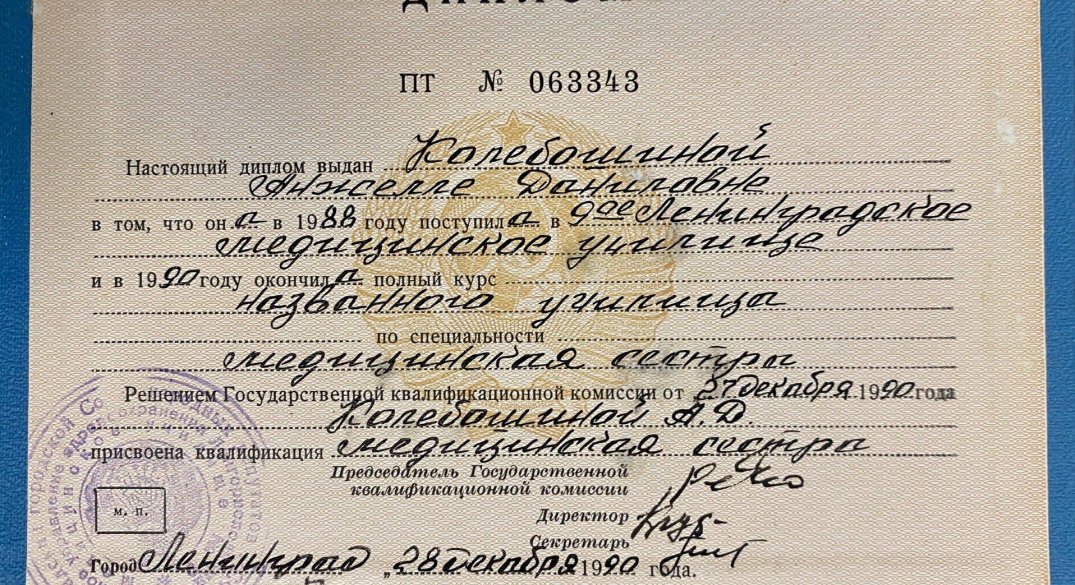 ДИПЛОМ
ПТ № 063343
Настоящий диплом выдан Колебошиной
Анжелле Даниловне
в том, что она в 1988 году поступила в 9ое Ленинградское
медицинское училище
и в 1990 году окончила полный курс
названного училища
по специальности
медицинская сестра
Решением Государственной квалификационной комиссии от 27 декабря 1990 года
Колебошиной А.Д.
присвоена квалификация медицинская сестра
Председатель Государственной
квалификационной комиссии
Директор
Секретарь
м. п.
Город Ленинград „28 декабря 1990 года.